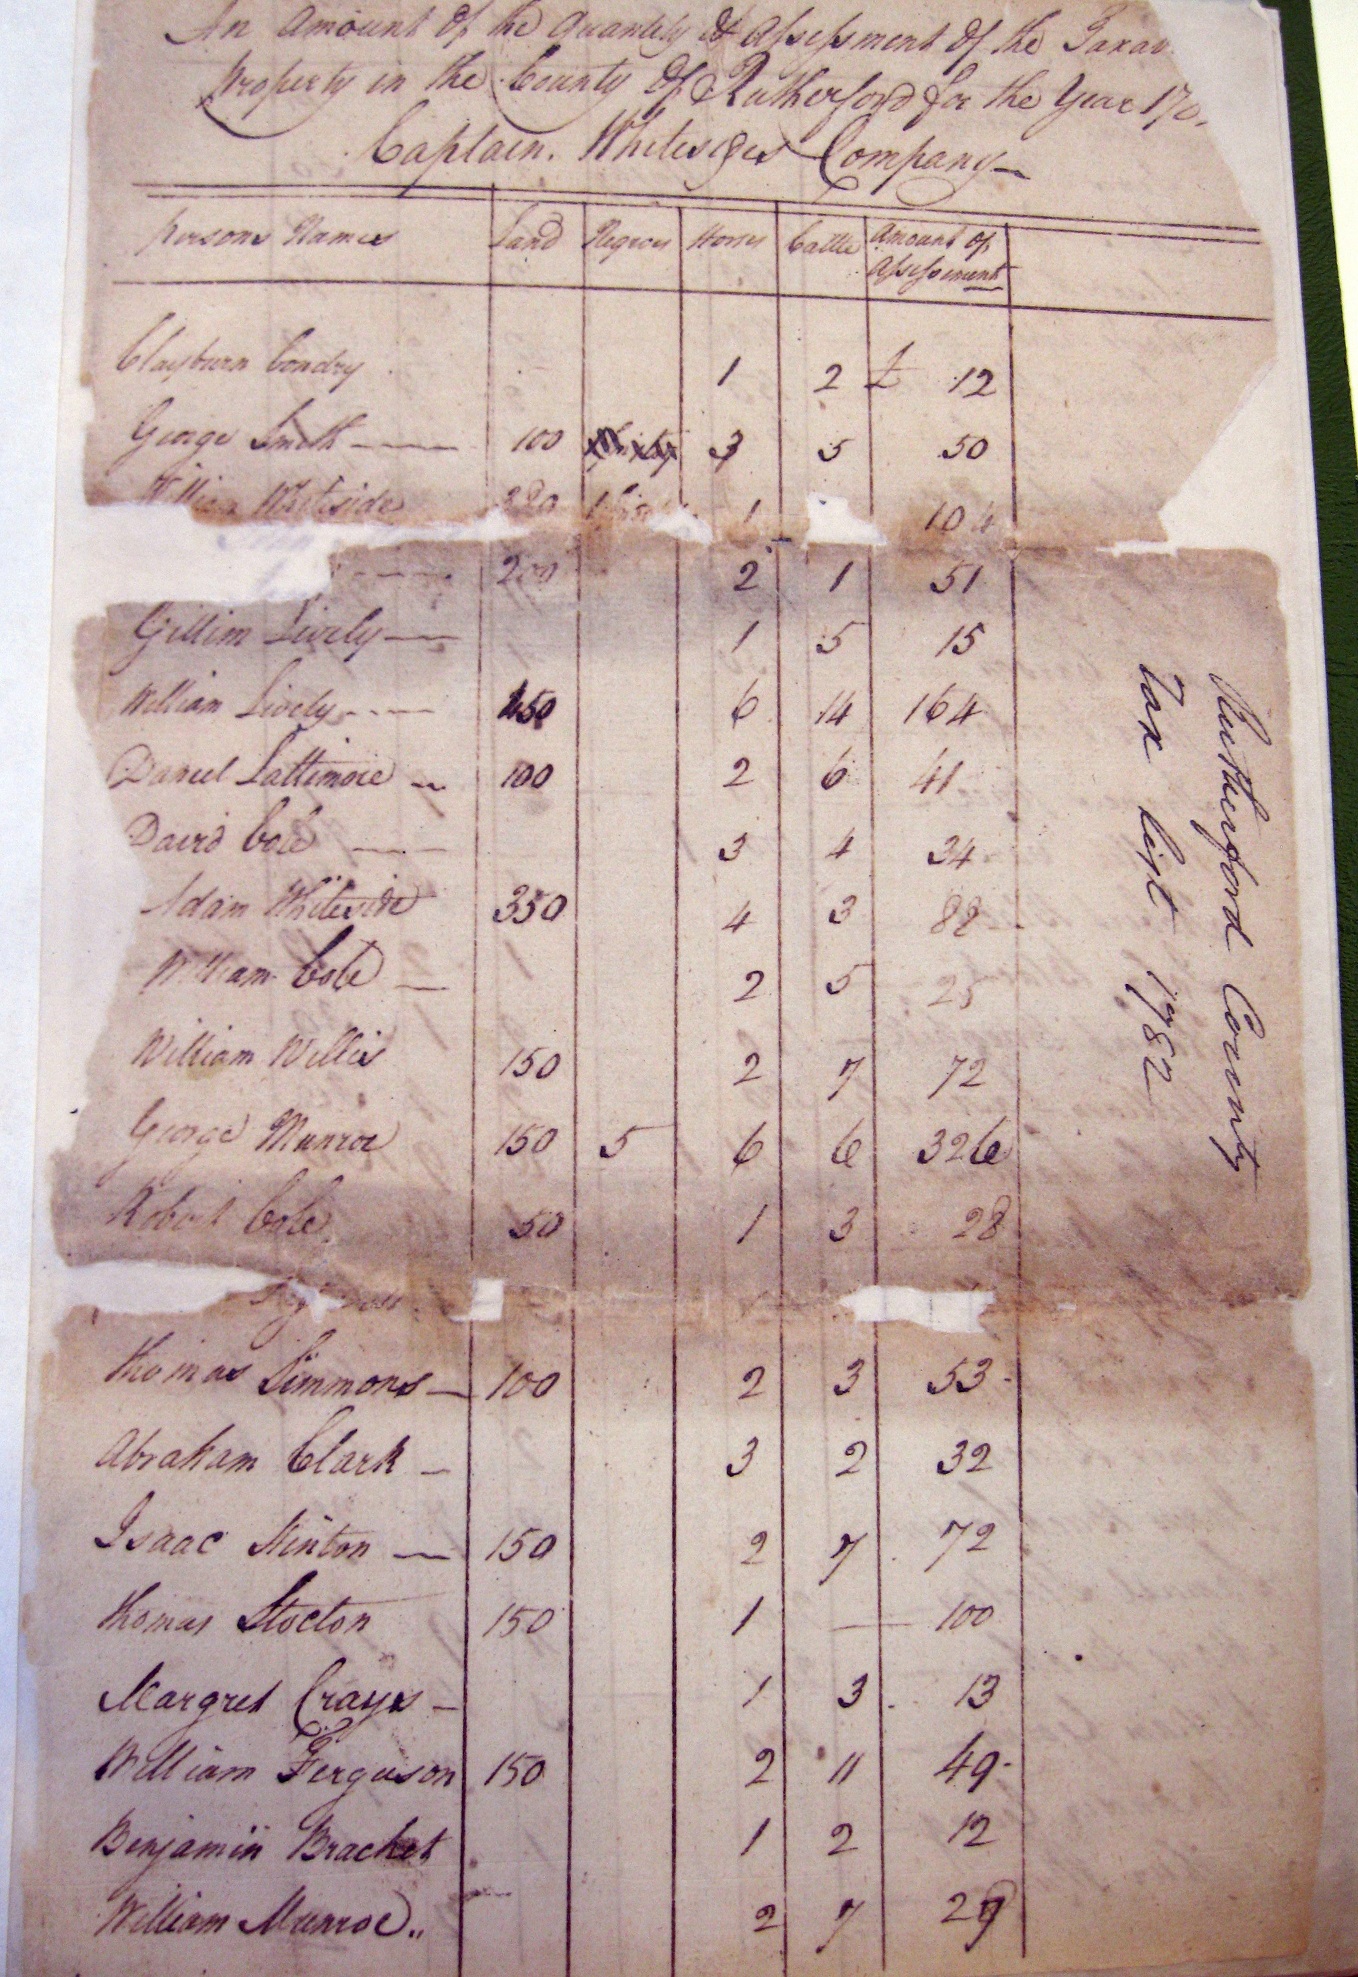 An amount of the Quantity & Assessment of the Taxav
Property in the County of Rutherford for the Year 17
Captain. Whitesides Company
Persons Names Land Negroes Horses Cattle Amount of
Assessment
Clayburn Condry 1 2 £ 12
George Smith 100 3 5 50
William Whiteside 1 104
200 2 1 51
Gillim Lively 1 5 15
William Lively 450 6 14 164
Daniel Lattimore 100 2 6 41
David Cole 3 4 34
Adam Whiteside 350 4 3 88
William Cole 2 5 25
William Willis 150 2 7 72
George Munroe 150 5 6 6 326
Robert Cole 50 1 3 28
Thomas Simmons 100 2 3 53
Abraham Clark 3 2 32
Isaac Hinton 150 2 7 72
Thomas Stocton 150 1 — 100
Margret Crays 1 3 13
William Ferguson 150 2 11 49
Benjamin Bracket 1 2 12
William Munroe 2 7 27
Rutherford County
Tax list 1782